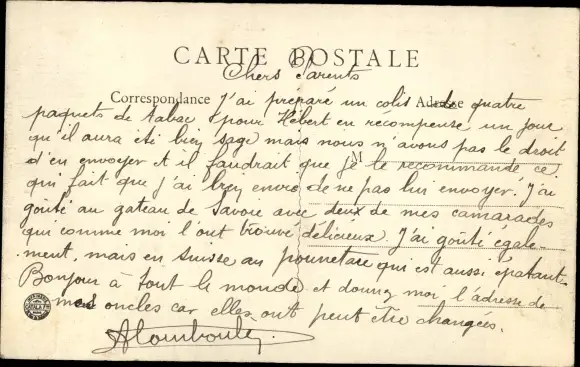 CARTE POSTALE
Chers Parents
Correspondance J'ai préparé un colis de quatre
paquets de tabac pour Hébert en récompense un jour
qu'il aura été bien sage mais nous n'avons pas le droit
M
d'en envoyer et il faudrait que je le recommande ce
qui fait que j'ai bien envie de ne pas lui envoyer. J'ai
goûté au gateau de Savoie avec deux de mes camarades
qui comme moi l'ont trouvé délicieux. J'ai goûté égale-
ment, mais en Suisse au qui est aussi épatant.
Bonjour à tout le monde et donnez moi l'adresse de
mes oncles car elles ont peut etre changées.